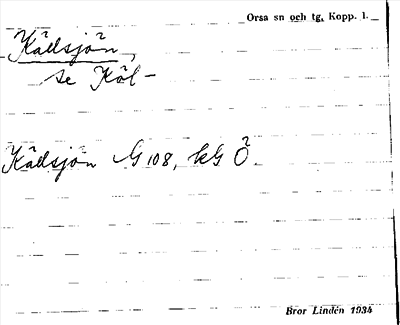 Orsa sn och tg, Kopp. l.
Källsjön,
se Käl-
Källsjön G 108, kG Ö.
Bror Lindén 1934